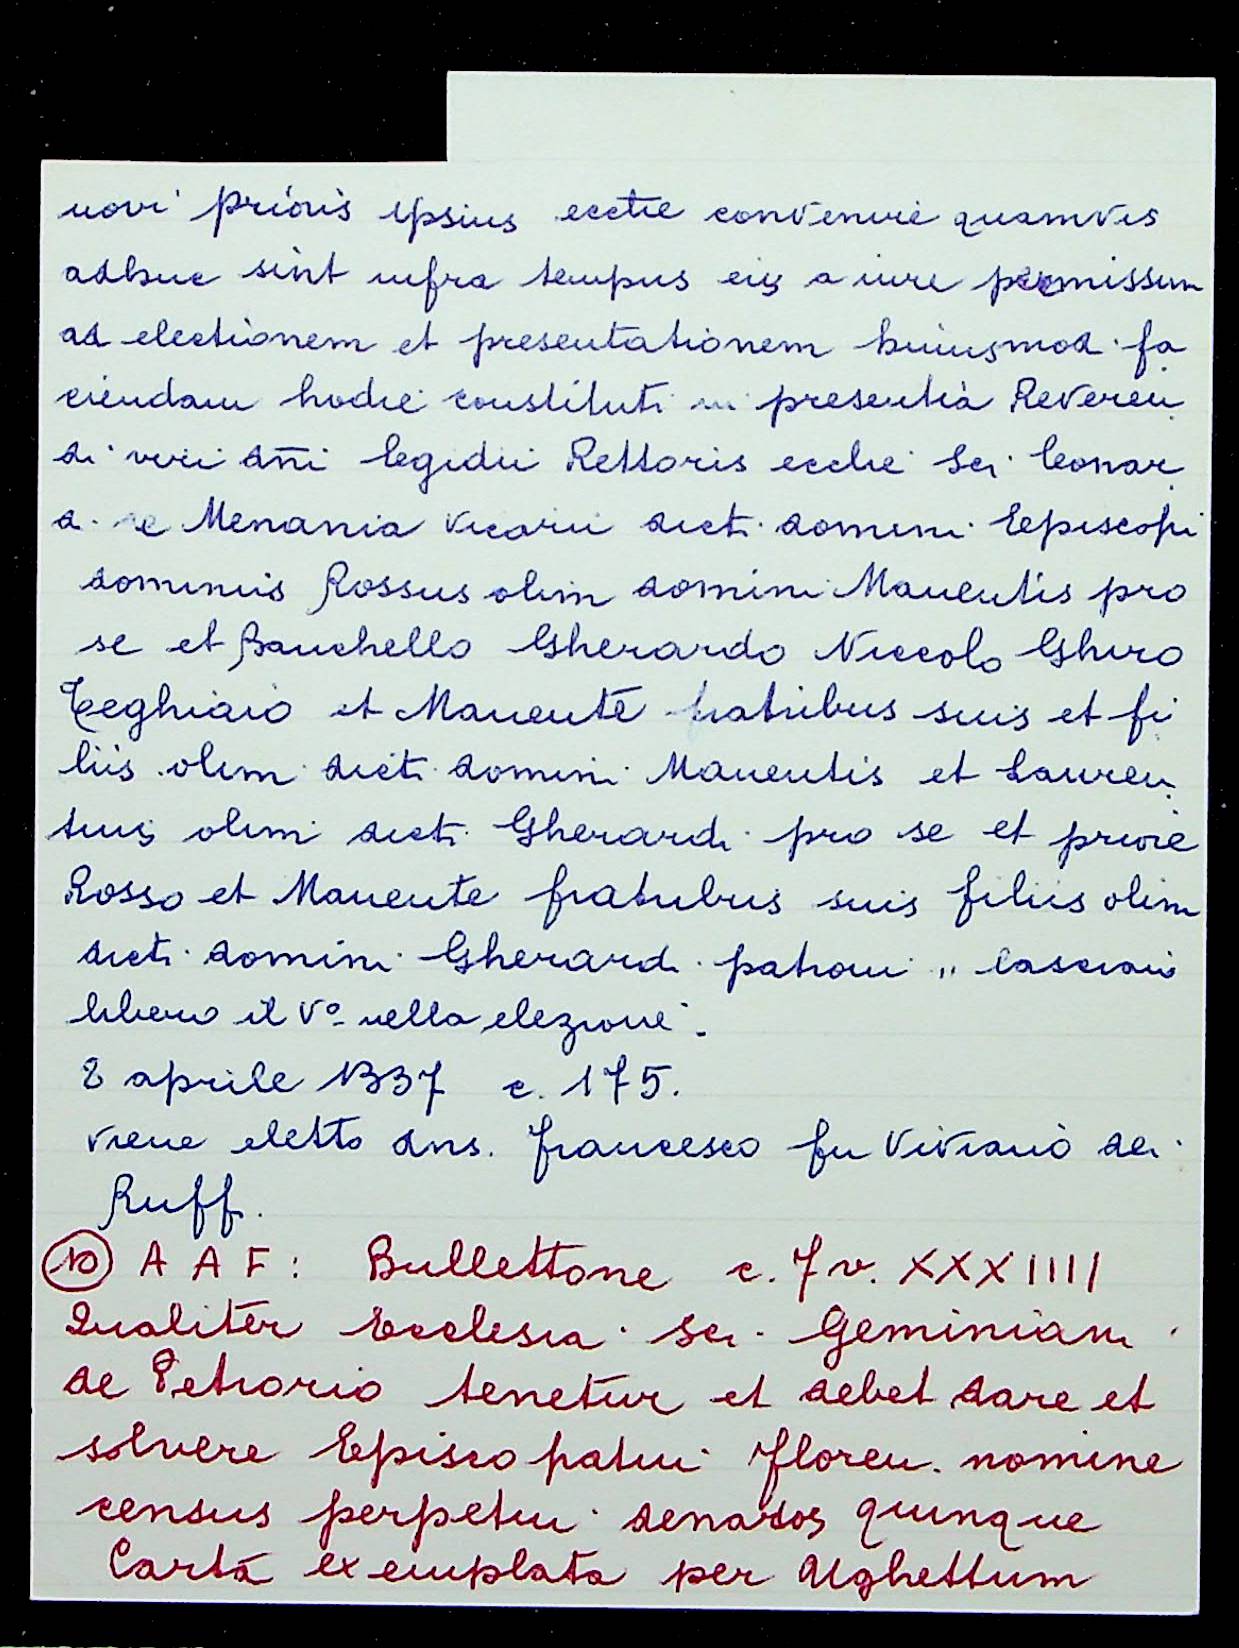 novi prioris ipsius eccłie convenire quamvis
adhuc sint infra tempus eis a iure permissum
ad electionem et presentationem huiusmod. fa
ciendam hodie constituti in presentia Reveren
di viri dñi Egidii Rettoris ecclie Sci. Leonar
di de Menania vicarii dicti domini Episcopi
dominus Rossus olim domini Manentis pro
se et Banchello Gherardo Niccolo Ghino
Teghiaio et Manente fratribus suis et fi
liis olim dicti domini Manentis et Lauren
tius olim dicti Gherardi pro se et priore
Rosso et Manente fratribus suis filiis olim
dicti domini Gherardi patroni " lasciano
libero il Vº nella elezione.
8 aprile 1337 c. 175.
viene eletto dns. Francesco fu Viviano dei
Ruff.
10 A A F: Bullettone c. 7 v. XXXIIII
Qualiter Ecclesia Sci. Geminiani
de Petrorio tenetur et debet dare et
solvere Episcopatui Floren. nomine
census perpetui denarios quinque
Carta exemplata per Ughettum